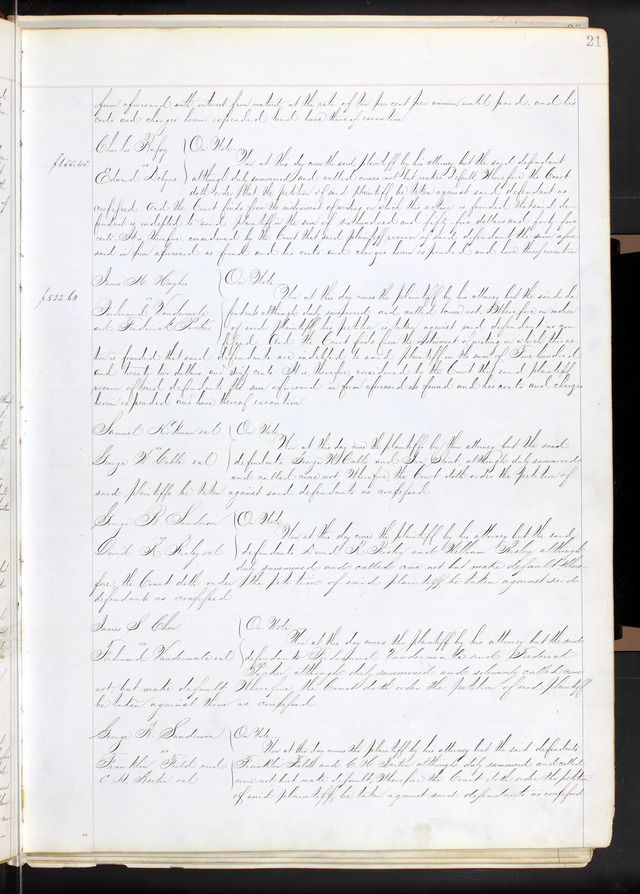 21
form aforesaid with interest from maturity at the rate of ten per cent per annum until paid and his
costs and charges herein expended and have thereof execution
Charles } On Note
Now at this day comes the said plaintiff by his attorney but the said defendant
vs
Edward although duly summoned and called comes not but makes default Wherefore the Court
doth order that the petition of said plaintiff be taken against said defendant as
confessed And the Court finds from the instrument of writing on which the action is founded that said de-
fendant is indebted to said plaintiff in the sum of hundred and fifty five dollars and forty five
cents It is therefore considered by the Court that said plaintiff recover of said defendant the sum afore
said in form aforesaid as found and his costs and charges herein expended and have thereof execution
James H. Hughes } On Note
$522.60
Now at this day comes the plaintiff by his attorney but the said de-
vs
Ferdinand Vandermale fendants although duly summoned and called comes not Wherefore on motion
and of said plaintiff his petition is taken against said defendant as con-
fessed. And the Court finds from the instrument of writing on which the ac-
tion is founded that said defendants are indebted to said plaintiff in the sum of Five hundred
and twenty two dollars and sixty cents It is therefore considered by the Court that said plaintiff
recover of said defendants the sum aforesaid in form aforesaid as found and his costs and charges
herein expended and have thereof execution
Samuel et al } On Note
Now at this day come the plaintiffs by their attorney but the said
vs
George W Cable et al defendants George W Cable and although duly summoned
and called come not Wherefore, the Court doth order the petition of
said plaintiffs be taken against said defendants as confessed
George R Sanderson } On Note
Now at this day comes the plaintiff by his attorney but the said
David R et al defendants David R and William although
duly summoned and called come not but make default Where-
fore, the Court doth order the petition of said plaintiff, be taken against said
defendants as confessed
James S } On Note
Now at this day comes the plaintiff by his attorney but the said
vs
Ferdinand Vandermale et al defendants Ferdinand Vandermale and Frederick
although duly summoned and solemnly called come
not but make default Wherefore, the Court doth order the petition of said plaintiff
be taken against them as confessed
George R. Sanderson } On Note
Now at this day comes the plaintiff by his attorney but the said defendants
vs
Franklin Field and Franklin Field and C. H. although duly summoned and called
C. H. et al come not but make default, Wherefore the Court doth order the petition
of said plaintiff, be taken against said defendants as confessed